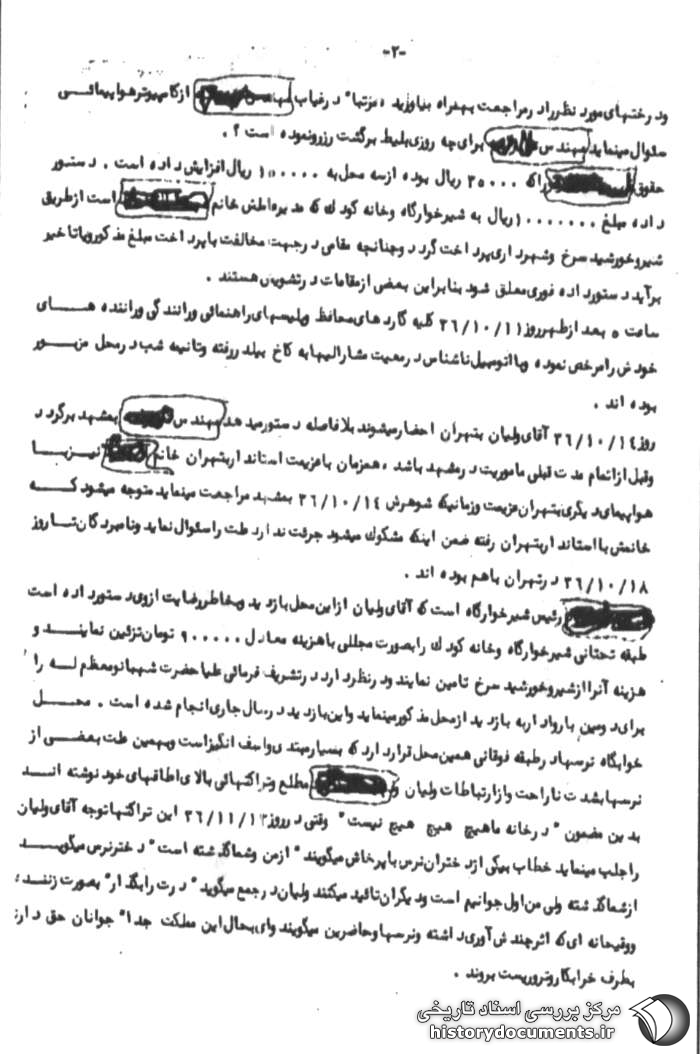 -۲-
ود رختهای مورد نظر را در مراجعت بهمراه بیاورید ، مرتبا" د رغیاب مهندس از کامپیوتر هواپیمائی
سئوال مینماید مهندس برای چه روزی بلیط برگشت رزرو نموده است ؟ .
حقوق را که ۳۵۰۰۰ ریال بوده از سه محل به ۱۰۰۰۰۰ ریال افزایش داده است . دستور
داده مبلغ ۱۰۰۰۰۰۰۰ ریال به شیرخوارگاه وخانه کودک که مدیره اش خانم است ازطریق
شیر و خورشید سرخ وشهرداری پرداخت گردد وچنانچه مقامی در جهت مخالفت با پرداخت مبلغ مذکور و یا تاخیر
برآید دستور داده فوری معلق شود بنابراین بعضی از مقامات در تشویش هستند .
ساعت ۵ بعد از ظهر روز ۳۶/۱۰/۱۱ کلیه گارد های محافظ و پلیسهای راهنمائی ورانندگی وراننده هــای
خود ش را مرخص نموده و با اتومبیل ناشناس در معیت مشارالیها به کاخ بیلد ررفته وتانیمه شب در محل مزبــور
بوده اند .
روز ۳۶/۱۰/۱۴ آقای ولیان بتهران احضار میشوند بلافاصله دستور میدهد مهندس بمشهد برگردد
وقبل از اتمام مدت قبلی ماموریت در مشهد باشد ، همزمان با عزیمت استاندار بتهران خانم نیــز بــا
هواپیمای دیگری بتهران عزیمت وزمانیکه شوهرش ۳۶/۱۰/۱۴ بمشهد مراجعت مینماید متوجه میشود کــه
خانمش با استاندار بتهران رفته ضمن اینکه مشکوک میشود جرئت ندارد علت را سئوال نماید ونامبردگان تــا روز
۳۶/۱۰/۱۸ در تهران باهم بوده اند .
رئیس شیرخوارگاه است که آقای ولیان از این محل بازدید وبخاطر رضایت ازوی دستور داده است
طبقه تحتانی شیرخوارگاه وخانه کودک را بصورت مجللی با هزینه معادل ۹۰۰۰۰۰ تومان تزئین نماینــد و
هزینه آنرا از شیر و خورشید سرخ تامین نمایند ودر نظر دارد در تشریف فرمائی علیاحضرت شهبانو معظم لــه را
برای دومین بار وادار به بازدید از محل مذکور مینماید و این بازدید در سال جاری انجام شده است . محــل
خوابگاه نرسها در طبقه فوقانی همین محل قرار دارد که بسیار مبتذی واسف انگیز است وبهمین علت بعضــی از
نرسها بشدت ناراحت و از ارتباطات ولیان و مطلع وتراکتهائی بالای اطاقهای خود نوشته انــد
بدین مضمون " در خانه ما هیچ هیچ هیچ نیست " وقتی در روز ۳۶/۱۱/۱۳ این تراکتها توجه آقای ولیان
را جلب مینماید خطاب بیکی از دختران نرس با پرخاش میگویند " از من وشما گذشته است " دختر نرس میگویــد
از شما گذشته ولی من اول جوانیم است ودیگران تائید میکنند ولیان در جمع میگوید " درت را بگذار " بصورت زننده
ووقیحانه ای که اثر چندش آوری داشته ونرسها وحاضرین میگویند وای بحال این مملکت جدا" جوانان حق دارند
بطرف خرابکار وتروریست بروند .
مرکز بررسی اسناد تاریخی
historydocuments.ir